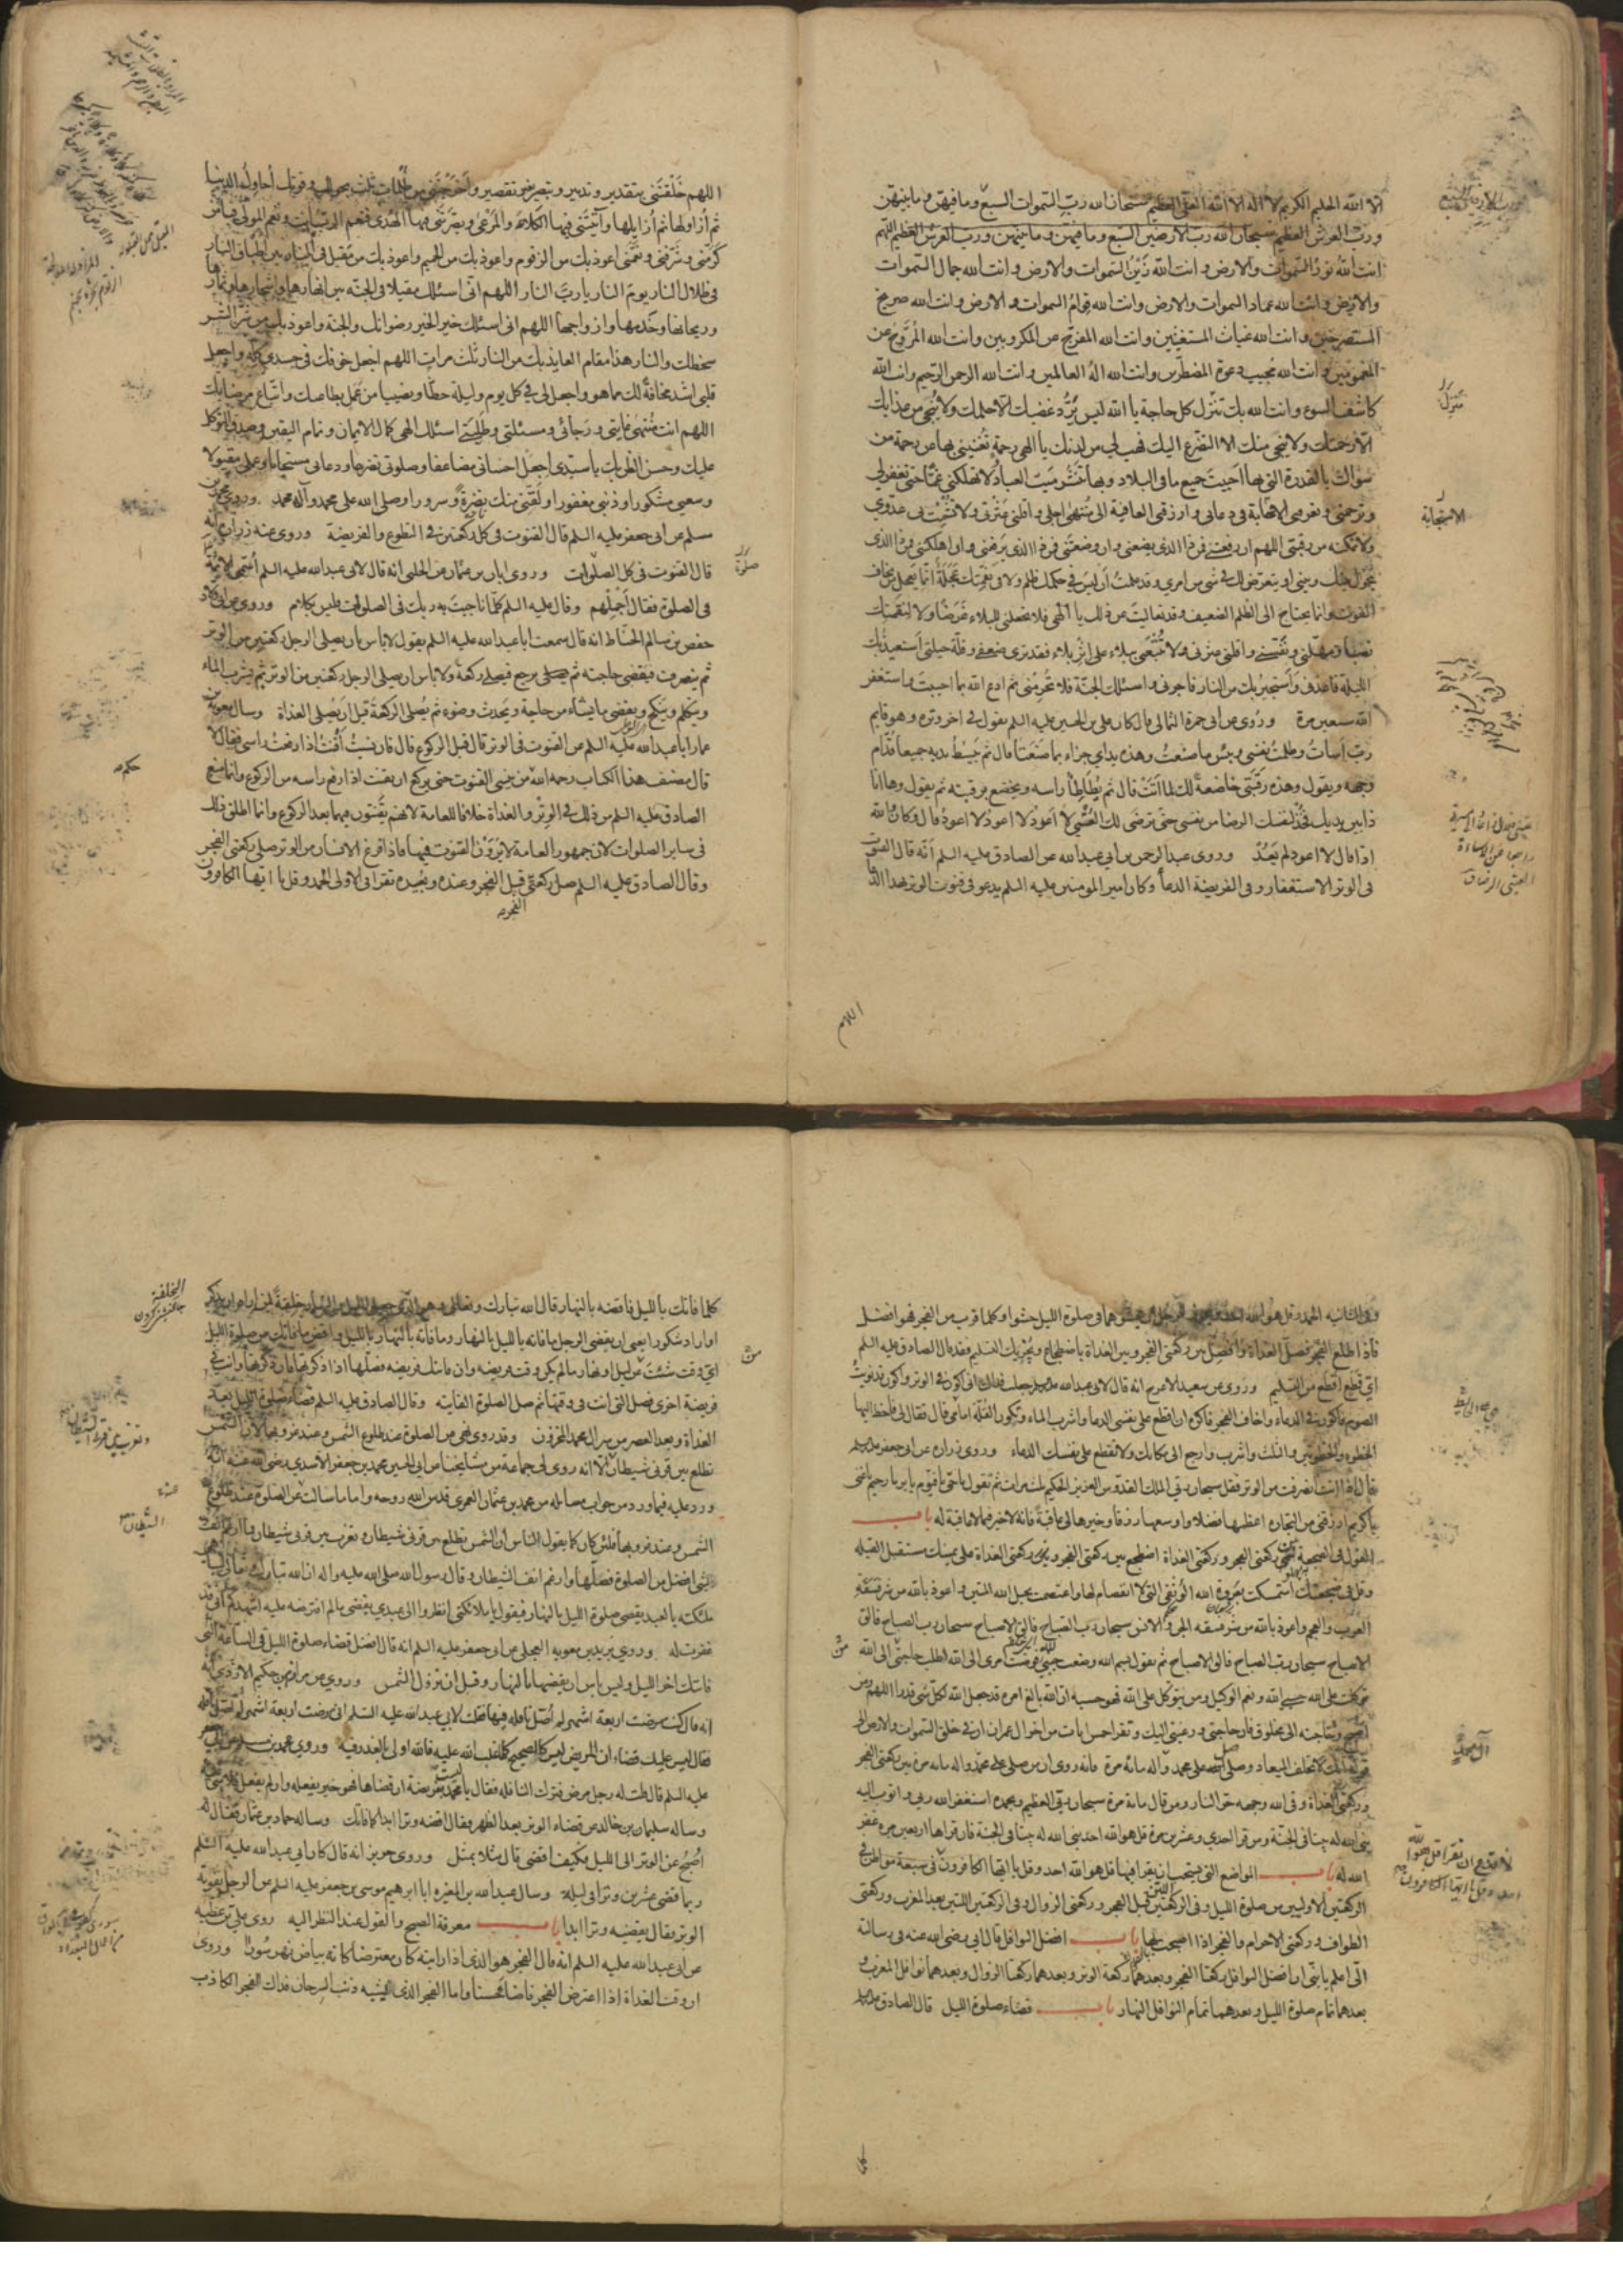 الا الله الحليم الكريم لا اله الا الله العلي العظيم سبحان الله رب السموات السبع وما فيهن وما بينهن
ورب العرش العظيم سبحان الله رب الارضين السبع وما فيهن وما بينهن ورب العرش العظيم اللهم
انت الله نور السموات والارض وانت الله زين السموات والارض وانت الله جمال السموات
والارض وانت الله عماد السموات والارض وانت الله قوام السموات والارض وانت الله صريخ
المستصرخين وانت الله غياث المستغيثين وانت الله المفرج عن المكروبين وانت الله المروح عن
المغمومين وانت الله مجيب دعوة المضطرين وانت الله اله العالمين وانت الله الرحمن الرحيم وانت الله
كاشف السوء وانت الله بك تنزل كل حاجة يا الله ليس يرد غضبك الا حلمك ولا ينجي من عذابك
الا رحمتك ولا ينجي منك الا التضرع اليك فهب لي من لدنك يا الهي رحمة تغنيني بها عن رحمة من
سواك بالقدرة التي بها احييت جميع ما في البلاد وبها تنشر ميت العباد ولا تهلكني غما حتى تغفر لي
وترحمني وتعرفني الاجابة في دعائي وارزقني العافية الى منتهى اجلي واقلني عثرتي ولا تشمت بي عدوي
ولا تمكنه من رقبتي اللهم ان رفعتني فمن ذا الذي يضعني وان وضعتني فمن ذا الذي يرفعني وان اهلكتني فمن ذا الذي
يحول بينك وبيني او يتعرض لك في شي من امري وقد علمت ان ليس في حكمك ظلم ولا في نقمتك عجلة انما يعجل من يخاف
الفوت وانما يحتاج الى الظلم الضعيف وقد تعاليت عن ذلك يا الهي فلا تجعلني للبلاء غرضا ولا لنقمتك
نصبا ومهلني ونفسني واقلني عثرتي ولا تتبعني ببلاء على اثر بلاء فقد ترى ضعفي وقلة حيلتي استعيذ بك
الليلة فاعذني واستجير بك من النار فاجرني واسئلك الجنة فلا تحرمني ثم ادع الله بما احببت واستغفر
الله سبعين مرة وروي عن ابي حمزة الثمالي قال كان علي بن الحسين عليه السلم يقول في اخر وتره وهو قايم
رب اسأت وظلمت نفسي وبئس ما صنعت وهذه يداي جزاء بما صنعتا قال ثم يبسط يديه جميعا قدام
وجهه ويقول وهذه رقبتي خاضعة لك لما اتت قال ثم يطأطئ راسه ويخضع برقبته ثم يقول وها انا
ذا بين يديك فخذ لنفسك الرضا من نفسي حتى ترضى لك العتبى لا اعود لا اعود لا اعود قال وكان والله
اذا قال لا اعود لم يعد وروى عبد الرحمن بن ابي عبد الله عن الصادق عليه السلم انه قال القنوت
في الوتر الاستغفار وفي الفريضة الدعاء وكان امير المومنين عليه السلم يدعو في قنوت الوتر بهذا الدعا
تنزل
الاستجابة
اللهم
اللهم خلقتني بتقدير وتدبير وتبصير بغير تقصير واخرجتني من ظلمات ثلث بحولك وقوتك احاول الدنيا
ثم ازاولها ثم ازايلها وآتيتني فيها الكلاء والمرعى وبصرتني فيها الهدى فنعم الرب انت ونعم المولى فيا من
كرمني وشرفني ونعمني اعوذ بك من الزقوم واعوذ بك من الحميم واعوذ بك من مقيل في النار بين اطباق النار
في ظلال النار يوم النار يا رب النار اللهم اني اسئلك مقيلا في الجنة بين انهارها واشجارها وثمارها
وريحانها وخدمها وازواجها اللهم اني اسئلك خير الخير رضوانك والجنة واعوذ بك من شر الشر
سخطك والنار هذا مقام العايذ بك من النار ثلث مرات اللهم اجعل خوفك في جسدي كله واجعل
قلبي اشد مخافة لك مما هو واجعل لي في كل يوم وليلة حظا ونصيبا من عمل بطاعتك واتباع مرضاتك
اللهم انت منتهى غايتي ورجائي ومسئلتي وطلبتي اسئلك الهي كمال الايمان وتمام اليقين وصدق التوكل
عليك وحسن الظن بك يا سيدي اجعل احساني مضاعفا وصلوتي تضرعا ودعائي مستجابا وعملي مقبولا
وسعيي مشكورا وذنبي مغفورا ولقني منك نضرة وسرورا وصلى الله على محمد وآله محمد وروى محمد بن
مسلم عن ابي جعفر عليه السلم قال القنوت في كل ركعتين في التطوع والفريضة وروى عنه زرارة انه
قال القنوت في كل الصلوات وروى ابان بن عثمان عن الحلبي انه قال لابي عبد الله عليه السلم اسمي الائمة
في الصلوة فقال اجملهم وقال عليه السلم كلما ناجيت به ربك في الصلوة فليس بكلام وروى عن ابي ولاد
حفص بن سالم الحناط انه قال سمعت ابا عبد الله عليه السلم يقول لا باس بان يصلي الرجل ركعتين من الوتر
ثم ينصرف فيقضي حاجته ثم يرجع فيصلي ركعة ولا باس ان يصلي الرجل ركعتين من الوتر ثم يشرب الماء
ويتكلم وينكح ويقضي ما يشاء من حاجة ويحدث وضوء ثم يصلي الركعة قبل ان يصلي الغداة وسال معوية بن
عمار ابا عبد الله عليه السلم عن القنوت في الوتر قال قبل الركوع قال فان نسيت اقنت اذا رفعت راسي فقال لا
قال مصنف هذا الكتاب رحمه الله من نسي القنوت حتى يركع ان يقنت اذا رفع راسه من الركوع وانما منع
الصادق عليه السلم من ذلك في الوتر والغداة خلافا للعامة لانهم يقنتون فيهما بعد الركوع وانما اطلق ذلك
في ساير الصلوات لان جمهور العامة لا يرون القنوت فيها فاذا فرغ الانسان من الوتر صلى ركعتي الفجر
وقال الصادق عليه السلم صل ركعتي قبل الفجر وعنده وبعيده تقرأ في الاولى الحمد وقل يا ايها الكافرون
الفجر
صلوة
حكمه
وفي الثانية الحمد وقل هو الله احد ويجوز للرجل ان يحشوهما في صلوة الليل حشوا وكلما قرب من الفجر فهو افضل
فاذا طلع الفجر فصل الغداة وافضل بين ركعتي الفجر وبين الغداة باضطجاع ويجزيك التسليم فقد قال الصادق عليه السلم
اي قطع اقطع من التسليم وروي عن سعيد الاعرج انه قال لابي عبد الله جعلت فداك اني اكون في الوتر واكون قد نويت
الصوم فاكون في الدعاء واخاف الفجر فاكره ان اقطع على نفسي الدعا واشرب الماء وتكون القلة امامي قال فقال لي فاخط اليها
الخطوة والخطوتين والثلث واشرب وارجع الى مكانك ولا تقطع على نفسك الدعاء وروى زرارة عن ابي جعفر
قال اذا انت انصرفت من الوتر فقل سبحان ربي الملك القدوس العزيز الحكيم ثلث مرات ثم تقول يا حي يا قيوم يا بر يا رحيم يا غني
يا كريم ارزقني من التجارة اعظمها فضلا واوسعها رزقا وخيرها لي عاقبة فانه لا خير فيما لا عاقبة له باب
القول في الضجعة بين ركعتي الفجر وركعتي الغداة اضطجع بين ركعتي الفجر وبين ركعتي الغداة على يمينك مستقبل القبلة
وقل في ضجعتك استمسكت بعروة الله الوثقى التي لا انفصام لها واعتصمت بحبل الله المتين واعوذ بالله من شر فسقة
العرب والعجم واعوذ بالله من شر فسقة الجن والانس سبحان رب الصباح فالق الاصباح سبحان رب الصباح فالق
الاصباح سبحان رب الصباح فالق الاصباح ثم تقول بسم الله وضعت جنبي لله فوضت امري الى الله اطلب حاجتي الى الله
توكلت على الله حسبي الله ونعم الوكيل ومن يتوكل على الله فهو حسبه ان الله بالغ امره قد جعل الله لكل شي قدرا اللهم ومن
اصبح وحاجته الى مخلوق فان حاجتي ورغبتي اليك وتقرا خمس ايات من اخر ال عمران ان في خلق السموات والارض الى
قوله انك لا تخلف الميعاد وصل على محمد وآله مائة مرة فانه روي ان من صلى على محمد وآله مائة مرة بين ركعتي الفجر
وركعتي الغداة وقى الله وجهه حر النار ومن قال مائة مرة سبحان ربي العظيم وبحمده استغفر الله ربي واتوب اليه
بنى الله له بيتا في الجنة ومن قرا احدي وعشرين مرة قل هو الله احد بنى الله له بيتا في الجنة فان قراها اربعين مرة غفر
الله له باب المواضع التي يستحب ان يقرا فيها قل هو الله احد وقل يا ايها الكافرون في سبعة مواطن في
الركعتين الاوليين من صلوة الليل وفي الركعتين قبل الفجر وركعتي الزوال وفي الركعتين اللتين بعد المغرب وركعتي
الطواف وركعتي الاحرام والفجر اذا اصبحت بها باب افضل النوافل قال ابي رضي الله عنه في رسالته
الي اعلم يا بني ان افضل النوافل ركعتا الفجر وبعدهما ركعة الوتر وبعدهما ركعتا الزوال وبعدهما نوافل المغرب
بعدهما تمام صلوة الليل وبعدهما تمام النوافل النهار باب قضاء صلوة الليل قال الصادق
لا تدع ان تقرا قل هو الله
احد وقل يا ايها الكافرون
كلما فاتك بالليل فاقضه بالنهار قال الله تبارك وتعالى وهو الذي جعل الليل والنهار خلفة لمن اراد ان يذكر
او اراد شكورا يعني ان يقضي الرجل ما فاته بالليل بالنهار وما فاته بالنهار بالليل واقض ما فاتك من صلوة الليل
اي وقت شئت من ليل او نهار ما لم يكن وقت فريضة وان فاتتك فريضة فصلها اذا ذكرتها فان ذكرتها وانت في
فريضة اخرى فصل التي انت في وقتها ثم صل الصلوة الفايتة وقال الصادق عليه السلم قضاء صلوة الليل بعد
الغداة وبعد العصر من سر آل محمد المخزون وقد روي نهي عن الصلوة عند طلوع الشمس وعند غروبها لان الشمس
تطلع بين قرني شيطان الا انه روى لي جماعة من مشايخنا عن ابي الحسين محمد بن جعفر الاسدي رضي الله عنه انه
ورد عليه فيما ورد من جواب مسائله من محمد بن عثمان العمري قدس الله روحه واما ما سالت عن الصلوة عند طلوع
الشمس وعند غروبها فلئن كان كما يقول الناس ان الشمس تطلع بين قرني شيطان وتغرب بين قرني شيطان فما ارغم انف
بشي افضل من الصلوة فصلها وارغم انف الشيطان وقال رسول الله صلى الله عليه واله ان الله تبارك وتعالى ليباهي
ملئكته بالعبد يقضي صلوة الليل بالنهار فيقول يا ملائكتي انظروا الى عبدي يقضي ما لم افترضه عليه اشهدكم اني قد
غفرت له وروى بريد بن معوية العجلي عن ابي جعفر عليه السلم انه قال افضل قضاء صلوة الليل في الساعة التي
فاتتك اخر الليل وليس باس ان يقضيها بالنهار وقبل ان تزول الشمس وروي عن مرازم بن حكيم الازدي انه
انه قال كنت مرضت اربعة اشهر لم اصل نافلة فيها فقلت لابي عبد الله عليه السلم اني مرضت اربعة اشهر لم اصل نافلة
فقال ليس عليك قضاء ان المريض ليس كالصحيح كلما غلب الله عليه فالله اولى بالعذر فيه وروى محمد بن مسلم عن ابي جعفر
عليه السلم قال قلت له رجل مرض فترك النافلة فقال يا محمد ليست بفريضة ان قضاها فهو خير يفعله وان لم يفعل فلا شي عليه
وساله سليمان بن خالد عن قضاء الوتر بعد الظهر فقال اقضه وترا ابدا كما فاتك وساله حماد بن عثمان فقال له
اصبح عن الوتر الى الليل فكيف اقضي قال مثلا بمثل وروى حريز عنه انه قال كان ابي عبد الله عليه السلم
ربما قضى عشرين وترا في ليلة وسال عبد الله بن المغيرة ابا ابرهيم موسى بن جعفر عليه السلم عن الرجل يفوته
الوتر فقال يقضيه وترا ابدا باب معرفة الصبح والقول عند النظر اليه روى علي بن عطية
عن ابي عبد الله عليه السلم انه قال الفجر هو الذي اذا رايته كان معترضا كانه بياض نهر سورا وروى
ان وقت الغداة اذا اعترض الفجر فاضاء حسنا واما الفجر الذي يشبه ذنب السرحان فذاك الفجر الكاذب